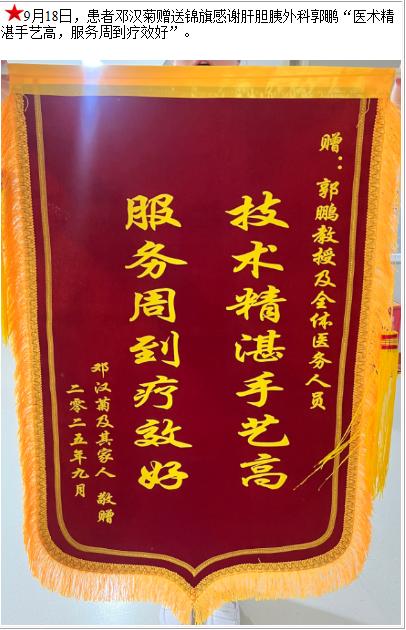 ★9月18日，患者邓汉菊赠送锦旗感谢肝胆胰外科郭鹏“医术精
湛手艺高，服务周到疗效好”。
赠：郭鹏教授及全体医务人员
技术精湛手艺高
服务周到疗效好
邓汉菊及其家人 敬赠
二零二五年九月